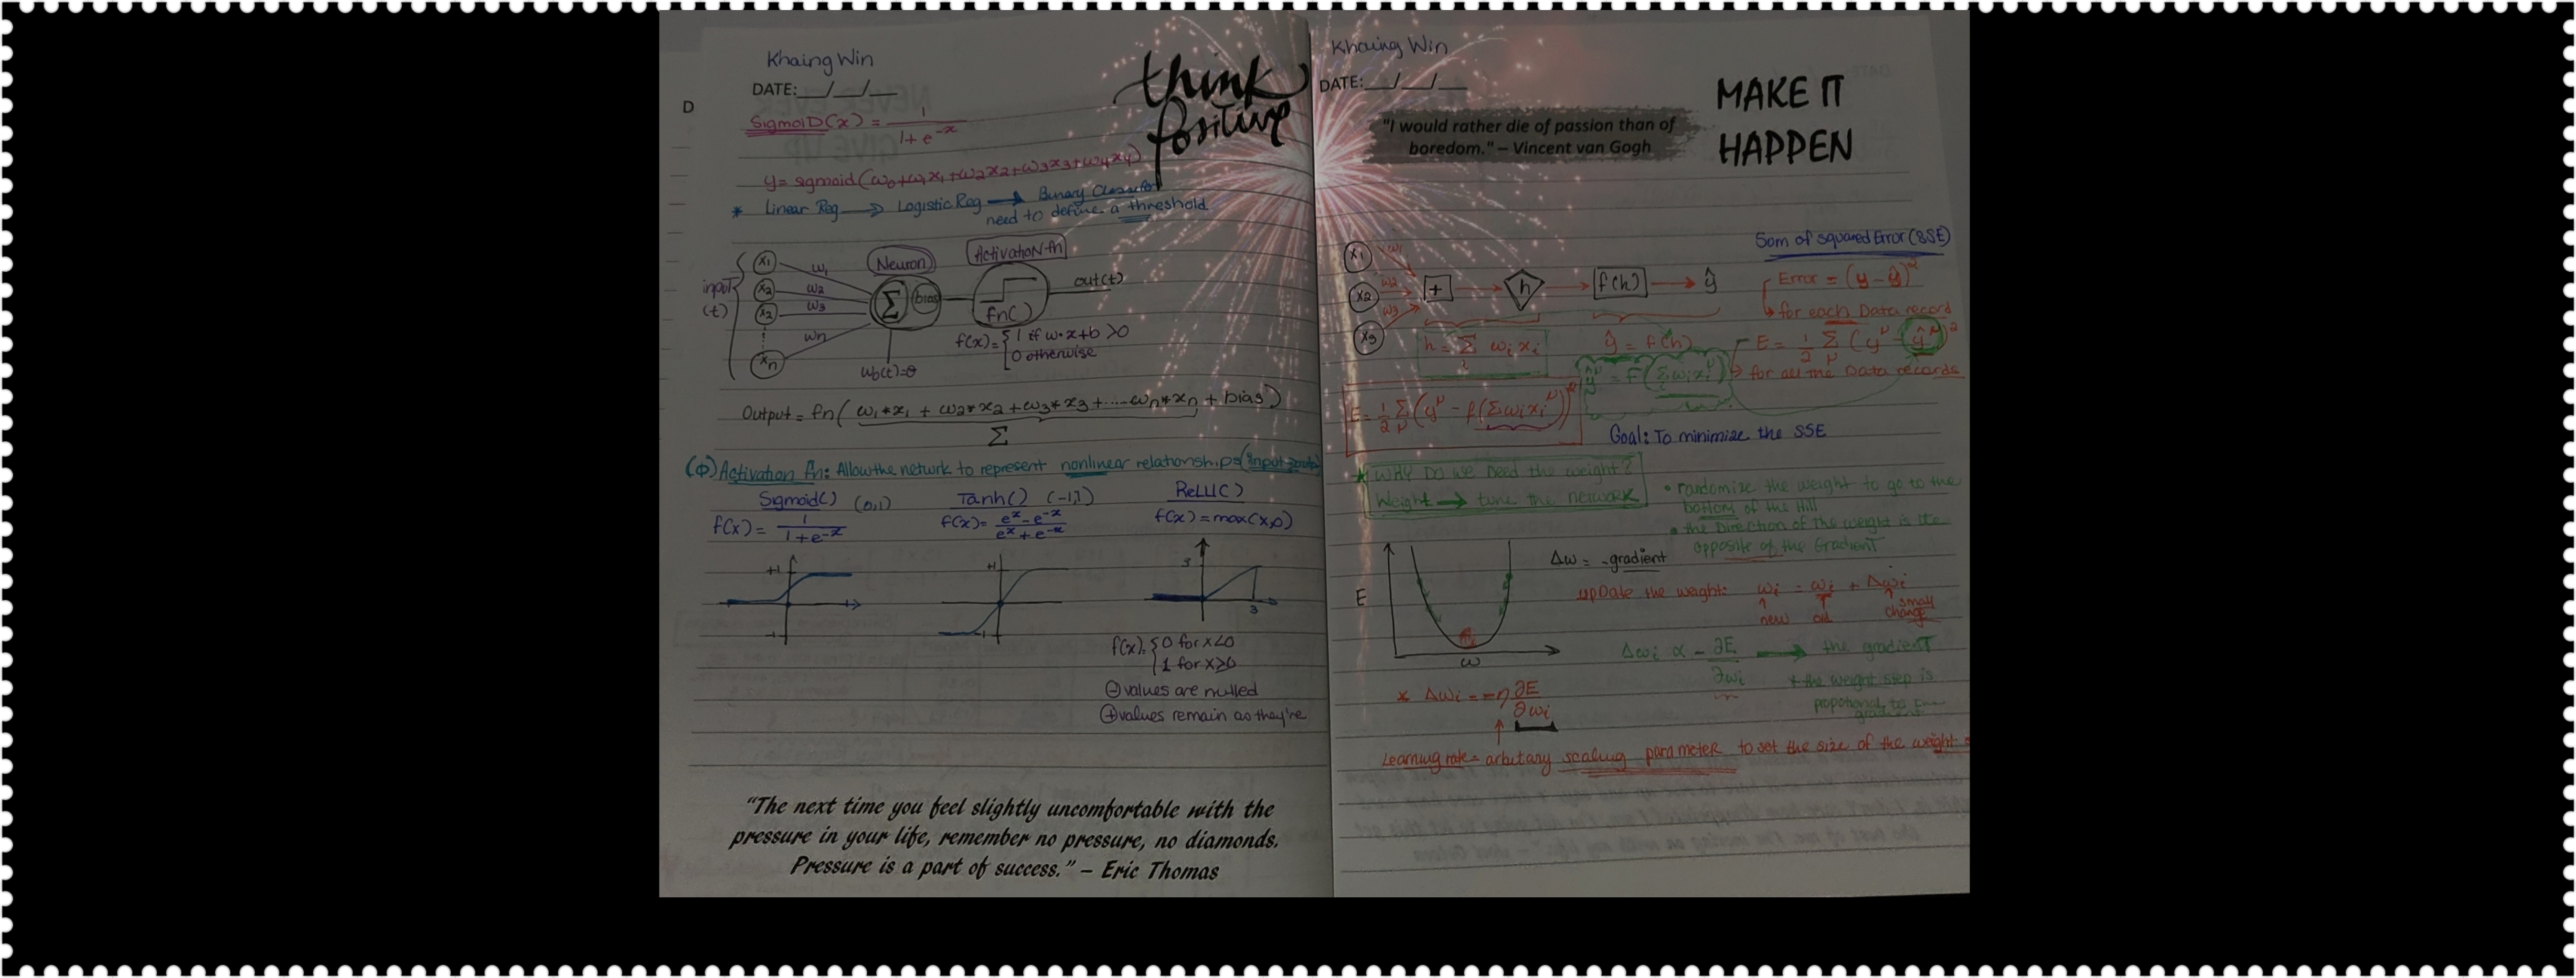 Khaing Win
DATE:__/__/__
think
positive
D
SigmoiD(x) = 1 / 1+e^-x
y = sigmoid(w0+w1x1+w2x2+w3x3+w4x4)
* Linear Reg → Logistic Reg → Binary Classifer
need to define a threshold
input (t)
x1
x2
x2
xn
w1
w2
w3
wn
Neuron
Σ
bias
Activation fn
fn()
out(t)
f(x)= { 1 if w·x+b >0
0 otherwise
w0(t)=θ
Output = fn( w1*x1 + w2*x2 + w3*x3 +....wn*xn + bias )
Σ
(Φ) Activation fn: Allow the netwrk to represent nonlinear relationship
Sigmoid() (0,1)
f(x) = 1 / 1+e^-x
Tanh() (-1,1)
f(x)= e^x - e^-x / e^x + e^-x
ReLU()
f(x) = max(x,0)
+1
-1
+1
-1
3
3
f(x)= { 0 for x<0
1 for x≥0
⊖ values are nulled
⊕ values remain as they're
"The next time you feel slightly uncomfortable with the
pressure in your life, remember no pressure, no diamonds.
Pressure is a part of success." – Eric Thomas
Khaing Win
DATE:__/__/__
"I would rather die of passion than of
boredom." – Vincent van Gogh
MAKE IT
HAPPEN
x1
x2
x3
w1
w2
w3
+ → h → f(h) → ŷ
h = Σi wi xi
ŷ = f(h)
ŷ^μ = f(Σi wi xi^μ)
Som of squared Error (SSE)
Error = (y - ŷ)^2
for each Data record
E = 1/2 Σμ (y^μ - ŷ^μ)^2
for all the Data records
E = 1/2 Σμ (y^μ - f(Σ wi xi^μ))^2
Goal: To minimize the SSE
* WHY Do we need the weight?
Weight → tune the network
• randomize the weight to go to the
bottom of the Hill
• the Direction of the weight is the
opposite of the Gradient
E
w
Δw = -gradient
upDate the weight: wi = wi + Δwi
new old small change
Δwi ∝ - ∂E / ∂wi → the gradient
* the weight step is
propotional to the
gradient
* Δwi = -η ∂E / ∂wi
Learning rate = arbitary scaling parameter to set the size of the weight